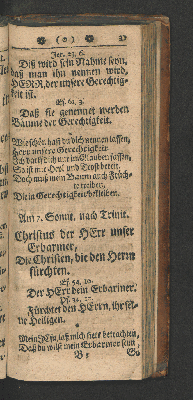 (o)
Jer. 23. 6.
Diß wird sein Nahme seyn,
daß man ihn nennen wird,
HERR, der unsere Gerechtig-
keit ist.
Es. 61. 3.
Daß sie genennet werden
Bäume der Gerechtigkeit.
Wie schön, hast du dich nennen lassen,
Herr unsere Gerechtigkeit
Ich darff dich nur im Glauben fassen,
So ist mir Heil und Trost bereit.
Doch muß mein Baum auch Früch-
te treiben,
Am 7. Sonnt. nach Trinit.
Christus der HErr unser
Erbarmer,
Die Christen, die den Herrn
fürchten.
Es. 54. 10.
Der HErr dein Erbarmer.
Ps. 34. 10.
Fürchtet den HErrn, ihr sei-
ne Heiligen.
laß mich stets betrachten,
Daß du willst mein Erbarmer seyn
B So